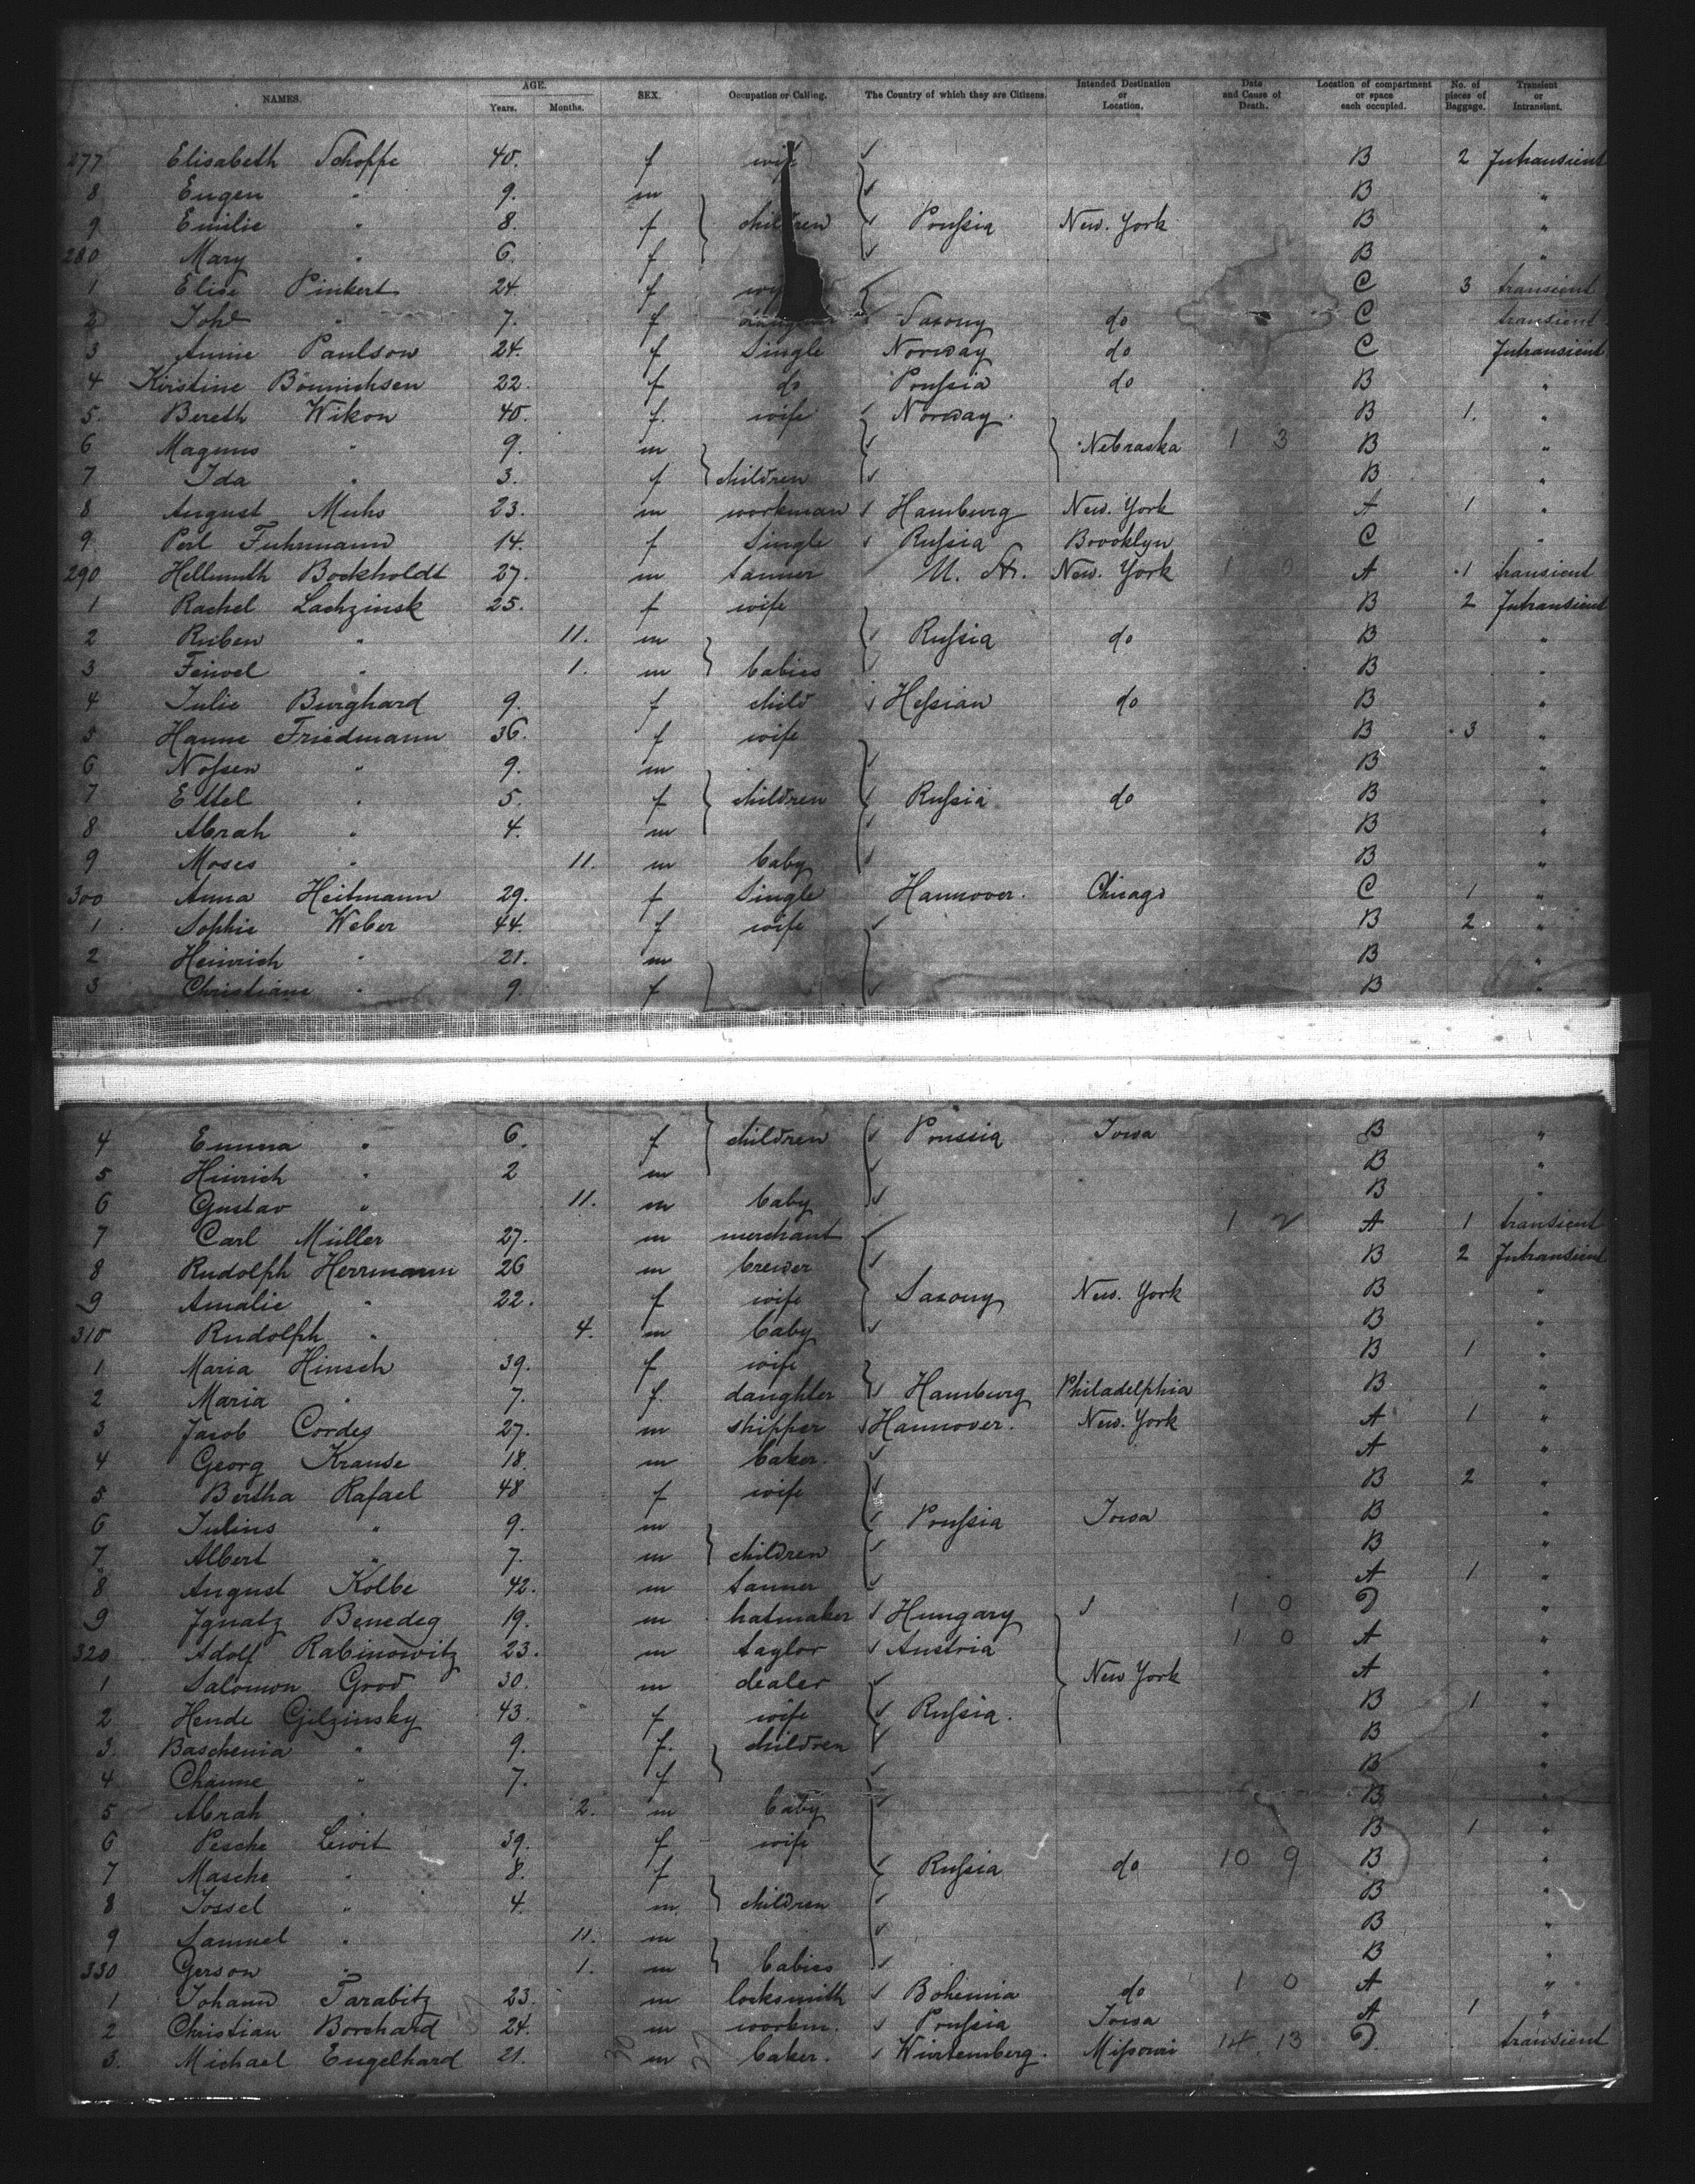 NAMES. AGE. Years. Months. SEX. Occupation or Calling. The Country of which they are Citizens. Intended Destination or Location. Date and Cause of Death. Location of compartment or space each occupied. No. of pieces of Baggage. Transient or Intransient.
277 Elisabeth Schoppe 40. f wife B 2 Intransient
8 Eugen " 9. m B "
9 Emilie " 8. f children Preussia New. York B "
280 Mary " 6. f B "
1 Elise Pinkert 24 f C 3 transient
2 " 7. f Saxony do C transient
3 Annie Paulson 24. f Single Norway do C Intransient
4 Kirstine Bönnichsen 22. f do Preussia do B "
5. Bereth Wikon 40. f. wife Norway. B 1. "
6 Magnus " 9. m Nebraska 1 3 B "
7 Ida " 3. f children B "
8 August Muhs 23. m workman Hamburg New. York A 1 "
9 Perl Fuhrmann 14. f Single Russia Brooklyn C "
290 Hellmuth Bockholdt 27. m tanner U. St. New. York A 1 transient
1 Rachel Lachzinsk 25. f wife B 2 Intransient
2 Ruben " 11. m Russia do B "
3 Feiwel " 1. m babies B "
4 Julie Burghard 9. f child Hessian do B "
5 Hanne Friedmann 36. f wife B 3 "
6 Nossen " 9. m B "
7 Ettel " 5. f children Russia do B "
8 Abrah " 4. m B "
9 Moses " 11. m baby B "
300 Anna Heitmann 29. f Single Hannover. Chicago C 1 "
1 Sophie Weber 44. f wife B 2 "
2 Heinrich " 21. m B "
3 Christiane " 9. f B "
4 Emma " 6. f children Preussia Iowa B "
5 Hinrich " 2 m B "
6 Gustav " 11. m baby B "
7 Carl Müller 27. m merchant 1 2 A 1 transient
8 Rudolph Herrmann 26 m brewer B 2 Intransient
9 Amalie " 22. f wife Saxony New. York B "
310 Rudolph " 4. m baby B "
1 Maria Hinsch 39. f wife B 1 "
2 Maria " 7. f. daughter Hamburg Philadelphia B "
3 Jacob Cordes 27. m shipper Hannover. New. York A 1 "
4 Georg Krause 18. m baker. A "
5 Bertha Rafael 48 f wife B 2 "
6 Julius " 9. m Preussia Iowa B "
7. Albert " 7. m children B "
8 August Kolbe 42. m tanner A 1 "
9 Ignatz Benedeg 19. m hatmaker Hungary 1 0 D "
320 Adolf Rabinowitz 23. m taylor Austria 1 0 A "
1 Salomon Grod 30. m dealer New York A "
2 Hende Gilzinsky 43. f wife Russia. B 1 "
3. Baschenia " 9. f. children B "
4 Channe " 7. f B "
5 Abrah " 2. m baby B "
6 Pesche Lewit 39. f wife B 1 "
7 Masche " 8. f Russia do 10 9 B "
8 Jossel " 4. m children B "
9 Samuel " 11. m B "
330 Gerson " 1. m babies B "
1 Johann Tarabitz 23. m locksmith Bohemia do 1 0 A "
2 Christian Borchard 24. m workm. Preussia Iowa A 1 "
3. Michael Engelhard 21. m baker. Würtemberg. Missouri 14. 13 D. transient